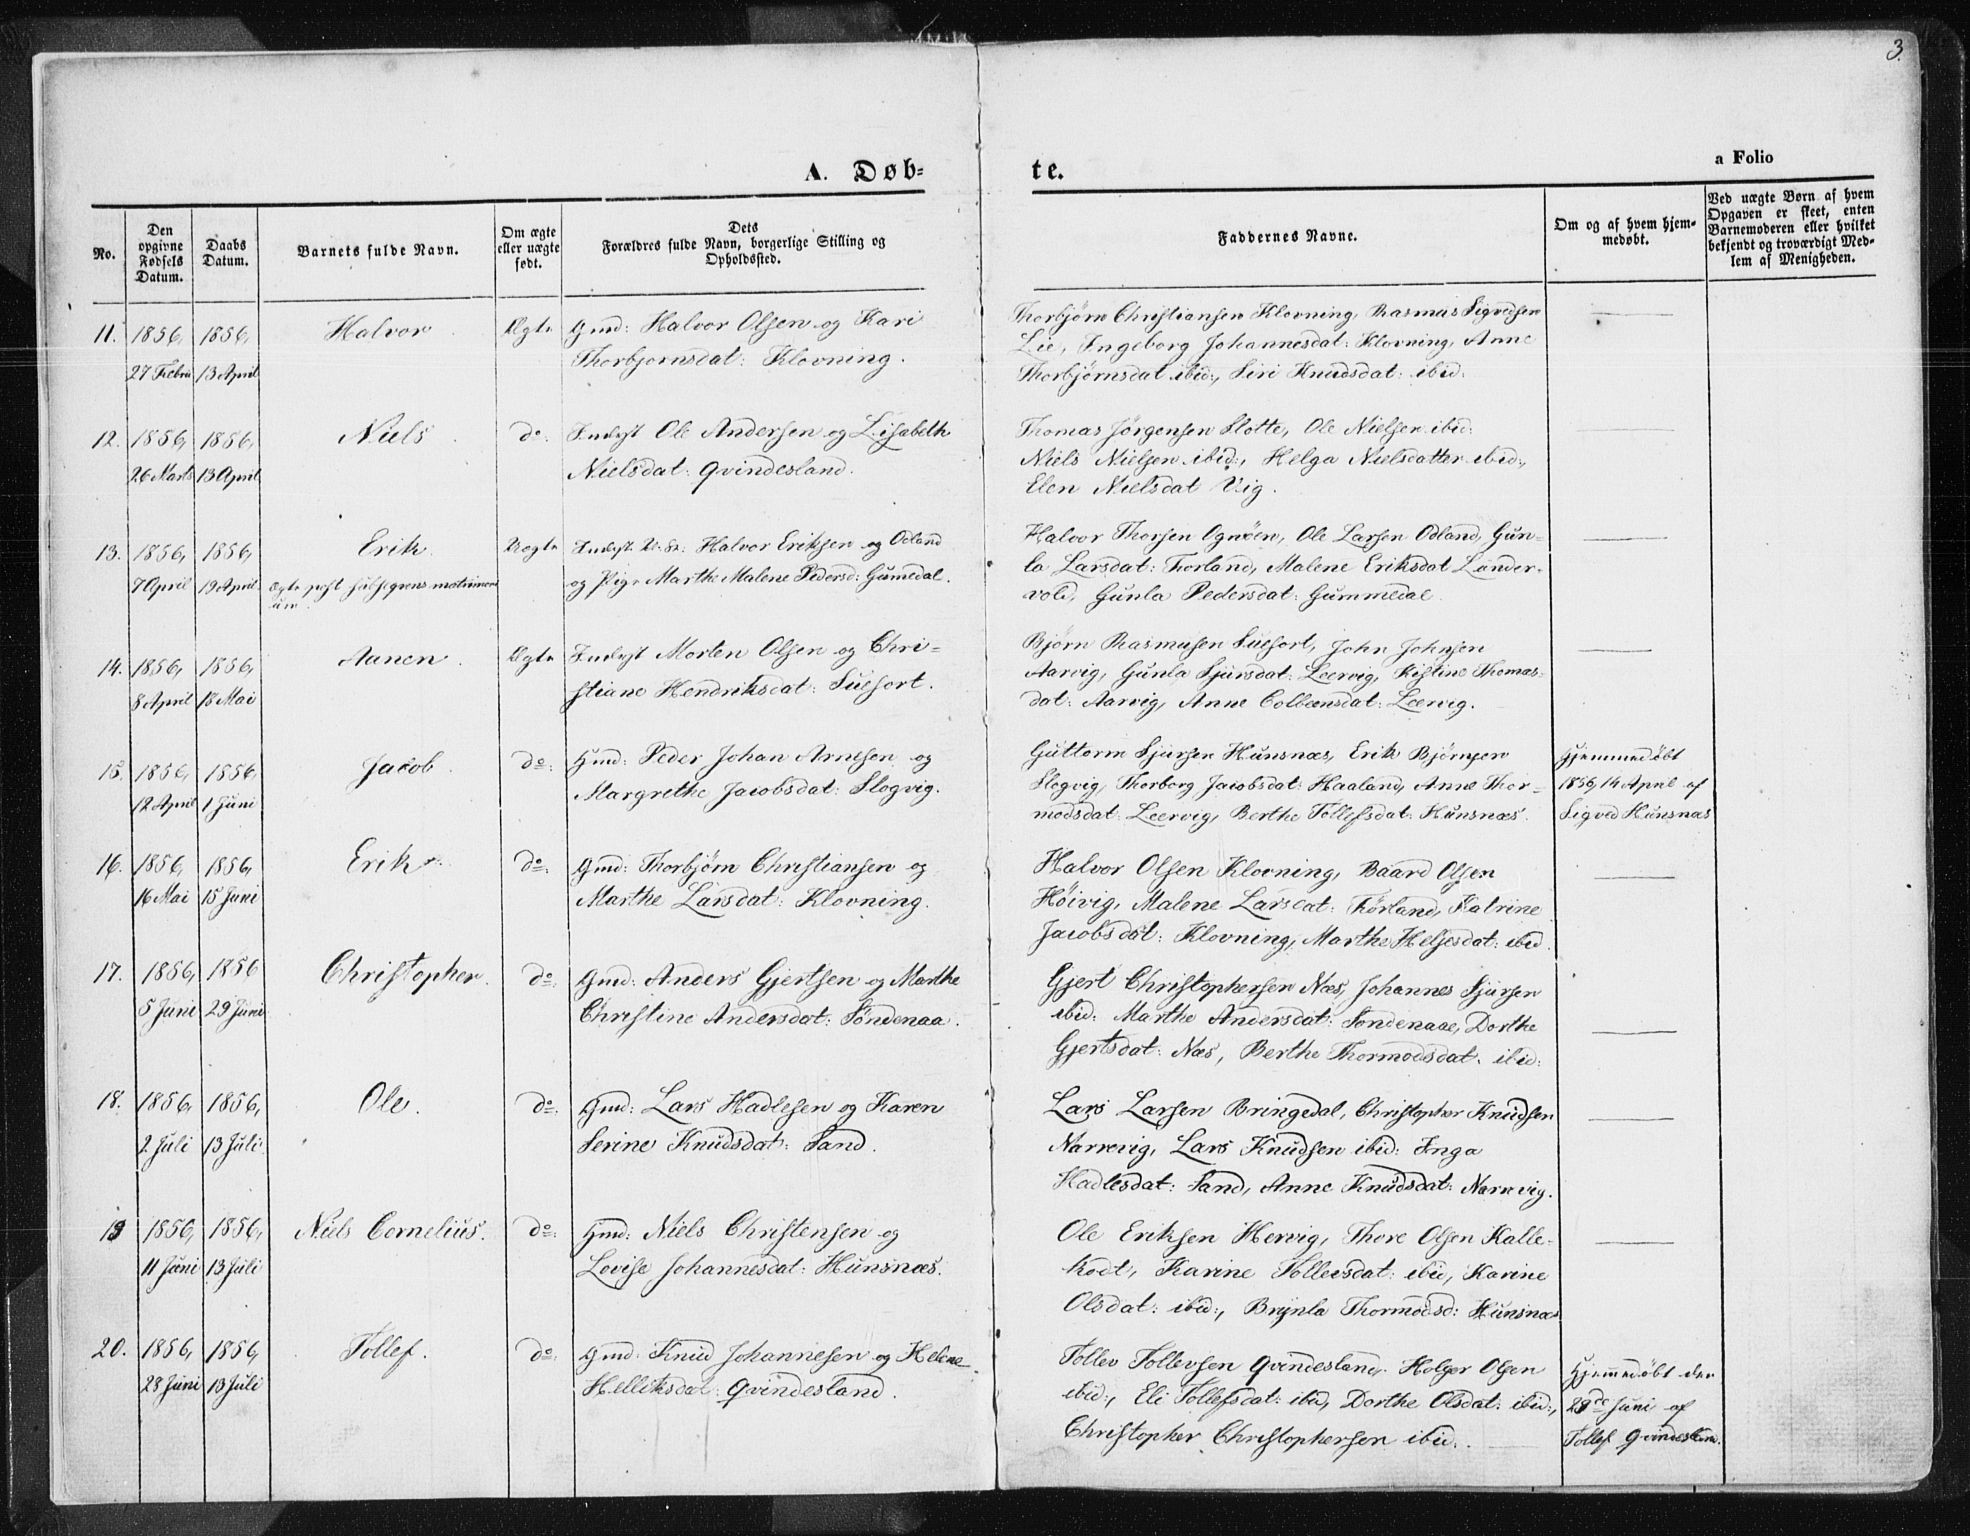 3.
A. Døb-
te.
a Folio
No.
Den opgivne Fødsels Datum.
Daabs Datum.
Barnets fulde Navn.
Om ægte eller uægte født.
Dets Forældres fulde Navn, borgerlige Stilling og Opholdssted.
Faddernes Navne.
Om og af hvem hjemmedøbt.
Ved uægte Børn af hvem Opgaven er skeet, enten Barnemoderen eller hvilket bekjendt og troværdigt Medlem af Menigheden.
11. 1856, 1856, Halvor. Ægte Gmd: Halvor Olsen og Kari
27 Febru 13 April Thorbjornsdat: Klovning.
Thorbjørn Christiansen Klovning, Rasmus Sigvedsen
Lie, Ingeborg Johannesdat: Klovning, Anne
Thorbjørnsdat ibid:, Siri Knudsdat: ibid:
12. 1856, 1856, Niels. do: Inderst Ole Andersen og Lisabeth
26 Marts 13 April Nielsdat: Qvindesland.
Thomas Jörgensen Slotte, Ole Nielsen ibid:
Niels Nielsen ibid:, Helga Nielsdatter ibid:,
Elen Nielsdat Vig.
13. 1856, 1856, Erik. Uegte Inderst Halvor Eriksen og Odland
7 April 19 April Ægte post subsegvens matrimoni
um.
og Pige Marthe Malene Pedersd: Gumedal.
Halvor Thorsen Ognøen, Ole Larsen Odland, Gun-
la Larsdat: Førland, Malene Eriksdat Lander-
vold, Gunla Pedersdat: Gummedal.
14. 1856, 1856, Aanen. Ægte Inderst Morten Olsen og Chri-
8 April 18 Mai stiane Hendriksdat: Suefort.
Bjørn Rasmusen Suefort, John Johnsen
Aarvig, Gunla Sjursdat: Leervig, Kistine Thomas-
dat: Aarvig, Anne Colbeensdat: Leervig.
15. 1856, 1856, Jacob. do: Gmd: Peder Johan Arnesen og
12 April 1 Juni Margrethe Jacobsdat: Slogvig.
Guttorm Sjursen Hunsnæs, Erik Bjørnsen
Slogvig, Thorborg Jacobsdat: Haaland, Anne Thor-
modsdat: Leervig, Berthe Tollefsdat: Hunsnæs.
Hjemmedøbt
1856, 14 April af
Sigved Hunsnæs
16. 1856, 1856, Erik do: Gmd: Thorbjørn Christiansen og
16 Mai 15 Juni Marthe Larsdat: Klovning.
Halvor Olsen Klovning, Baard Olsen
Høivig, Malene Larsdat: Førland, Katrine
Jacobsdat: Klovning, Marthe Heljesdat: ibid.
17. 1856, 1856 Christopher. do: Gmd: Anders Gjertsen og Marthe
5 Juni 29 Juni Christine Andersdat: Søndenaa.
Gjert Christophersen Næs, Johannes Sjursen
ibid: Marthe Andersdat: Søndenaae, Dorthe
Gjertsdat: Næs, Berthe Thormodsdat. ibid:
18. 1856, 1856, Ole. do: Gmd: Lars Hadlesen og Karen
2 Juli 13 Juli. Serine Knudsdat: Sand.
Lars Larsen Bringedal, Christopher Knudsen
Narrevig, Lars Knudsen ibid: Inga
Hadlesdat: Sand, Anne Knudsdat: Narrevig.
19 1856, 1856, Niels Cornelius. do: Gmd: Niels Christensen og
11 Juni 13 Juli Lovise Johannesdat: Hunsnæs.
Ole Eriksen Hervig, Thore Olsen Kalle-
kodt, Karine Tollevsdat: ibid, Karine
Olsdat: ibid:, Brynla Thormodsd: Hunsnæs.
20. 1856, 1856, Tollef. do: Gmd: Knud Johannesen og Helene
28 Juni 13 Juli Helliksdat: Qvindesland.
Tollev Tollevsen Qvindesland, Holger Olsen
ibid:, Eli Tollefsdat: ibid, Dorthe Olsdat: ibid:,
Christopher Christophersen ibid:.
Hjemmedøbt den
29de Juni af
Tollef Qvindesland.